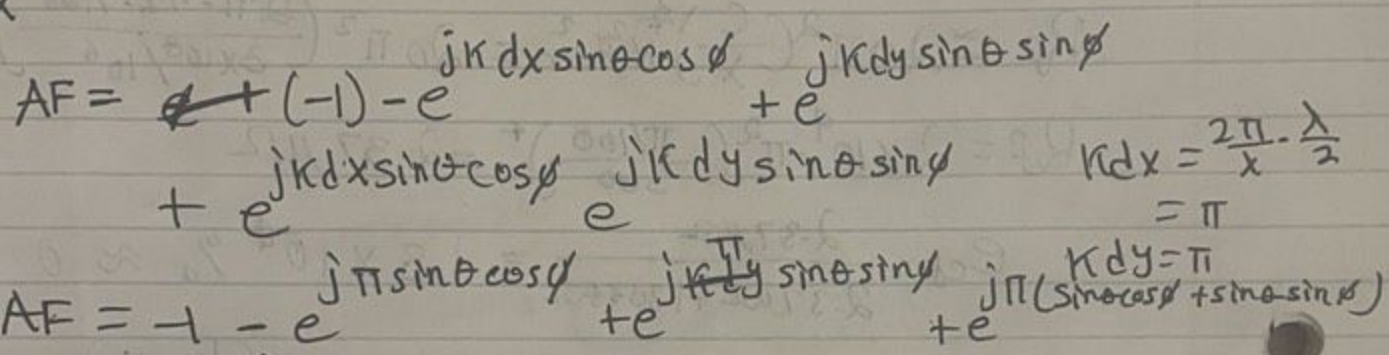 AF = (-1) - e^{jkdx sinθ cosφ} + e^{jkdy sinθ sinφ}
+ e^{jkdx sinθ cosφ} e^{jkdy sinθ sinφ} kdx = \frac{2π}{λ} · \frac{λ}{2}
= π
kdy = π
AF = -1 - e^{jπ sinθ cosφ} + e^{jπ sinθ sinφ} + e^{jπ(sinθ cosφ + sinθ sinφ)}